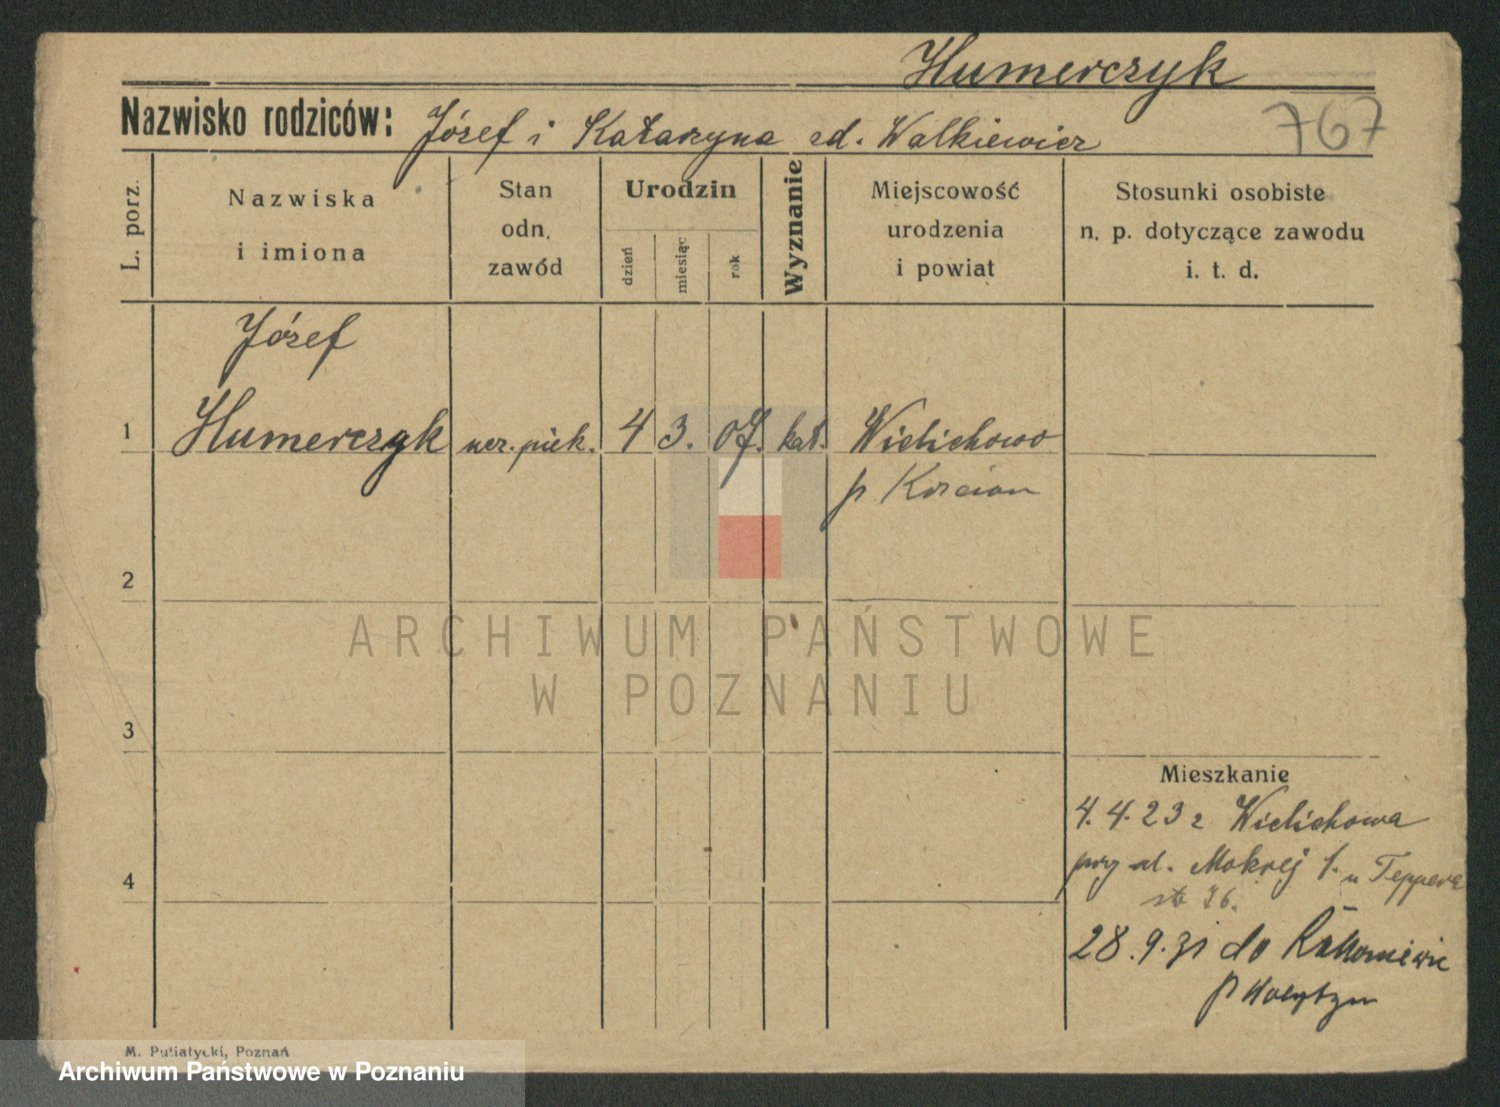 Humerczyk
Nazwisko rodziców: Józef i Katarzyna zd. Walkiewicz
767
L. porz.
Nazwiska
i imiona
Stan
odn.
zawód
Urodzin
dzień
miesiąc
rok
Wyznanie
Miejscowość
urodzenia
i powiat
Stosunki osobiste
n. p. dotyczące zawodu
i. t. d.
Józef
1 Humerczyk ucz. piek. 4 3. 07. kat. Wielichowo
p Kościan
2
ARCHIWUM PAŃSTWOWE
W POZNANIU
3
Mieszkanie
4. 4. 23 z Wielichowa
przy ul. Mokrej 1. u Teppera
4
28. 9. 31 do Rakoniewic
p Wolsztyn
M. Putiatycki, Poznań
Archiwum Państwowe w Poznaniu